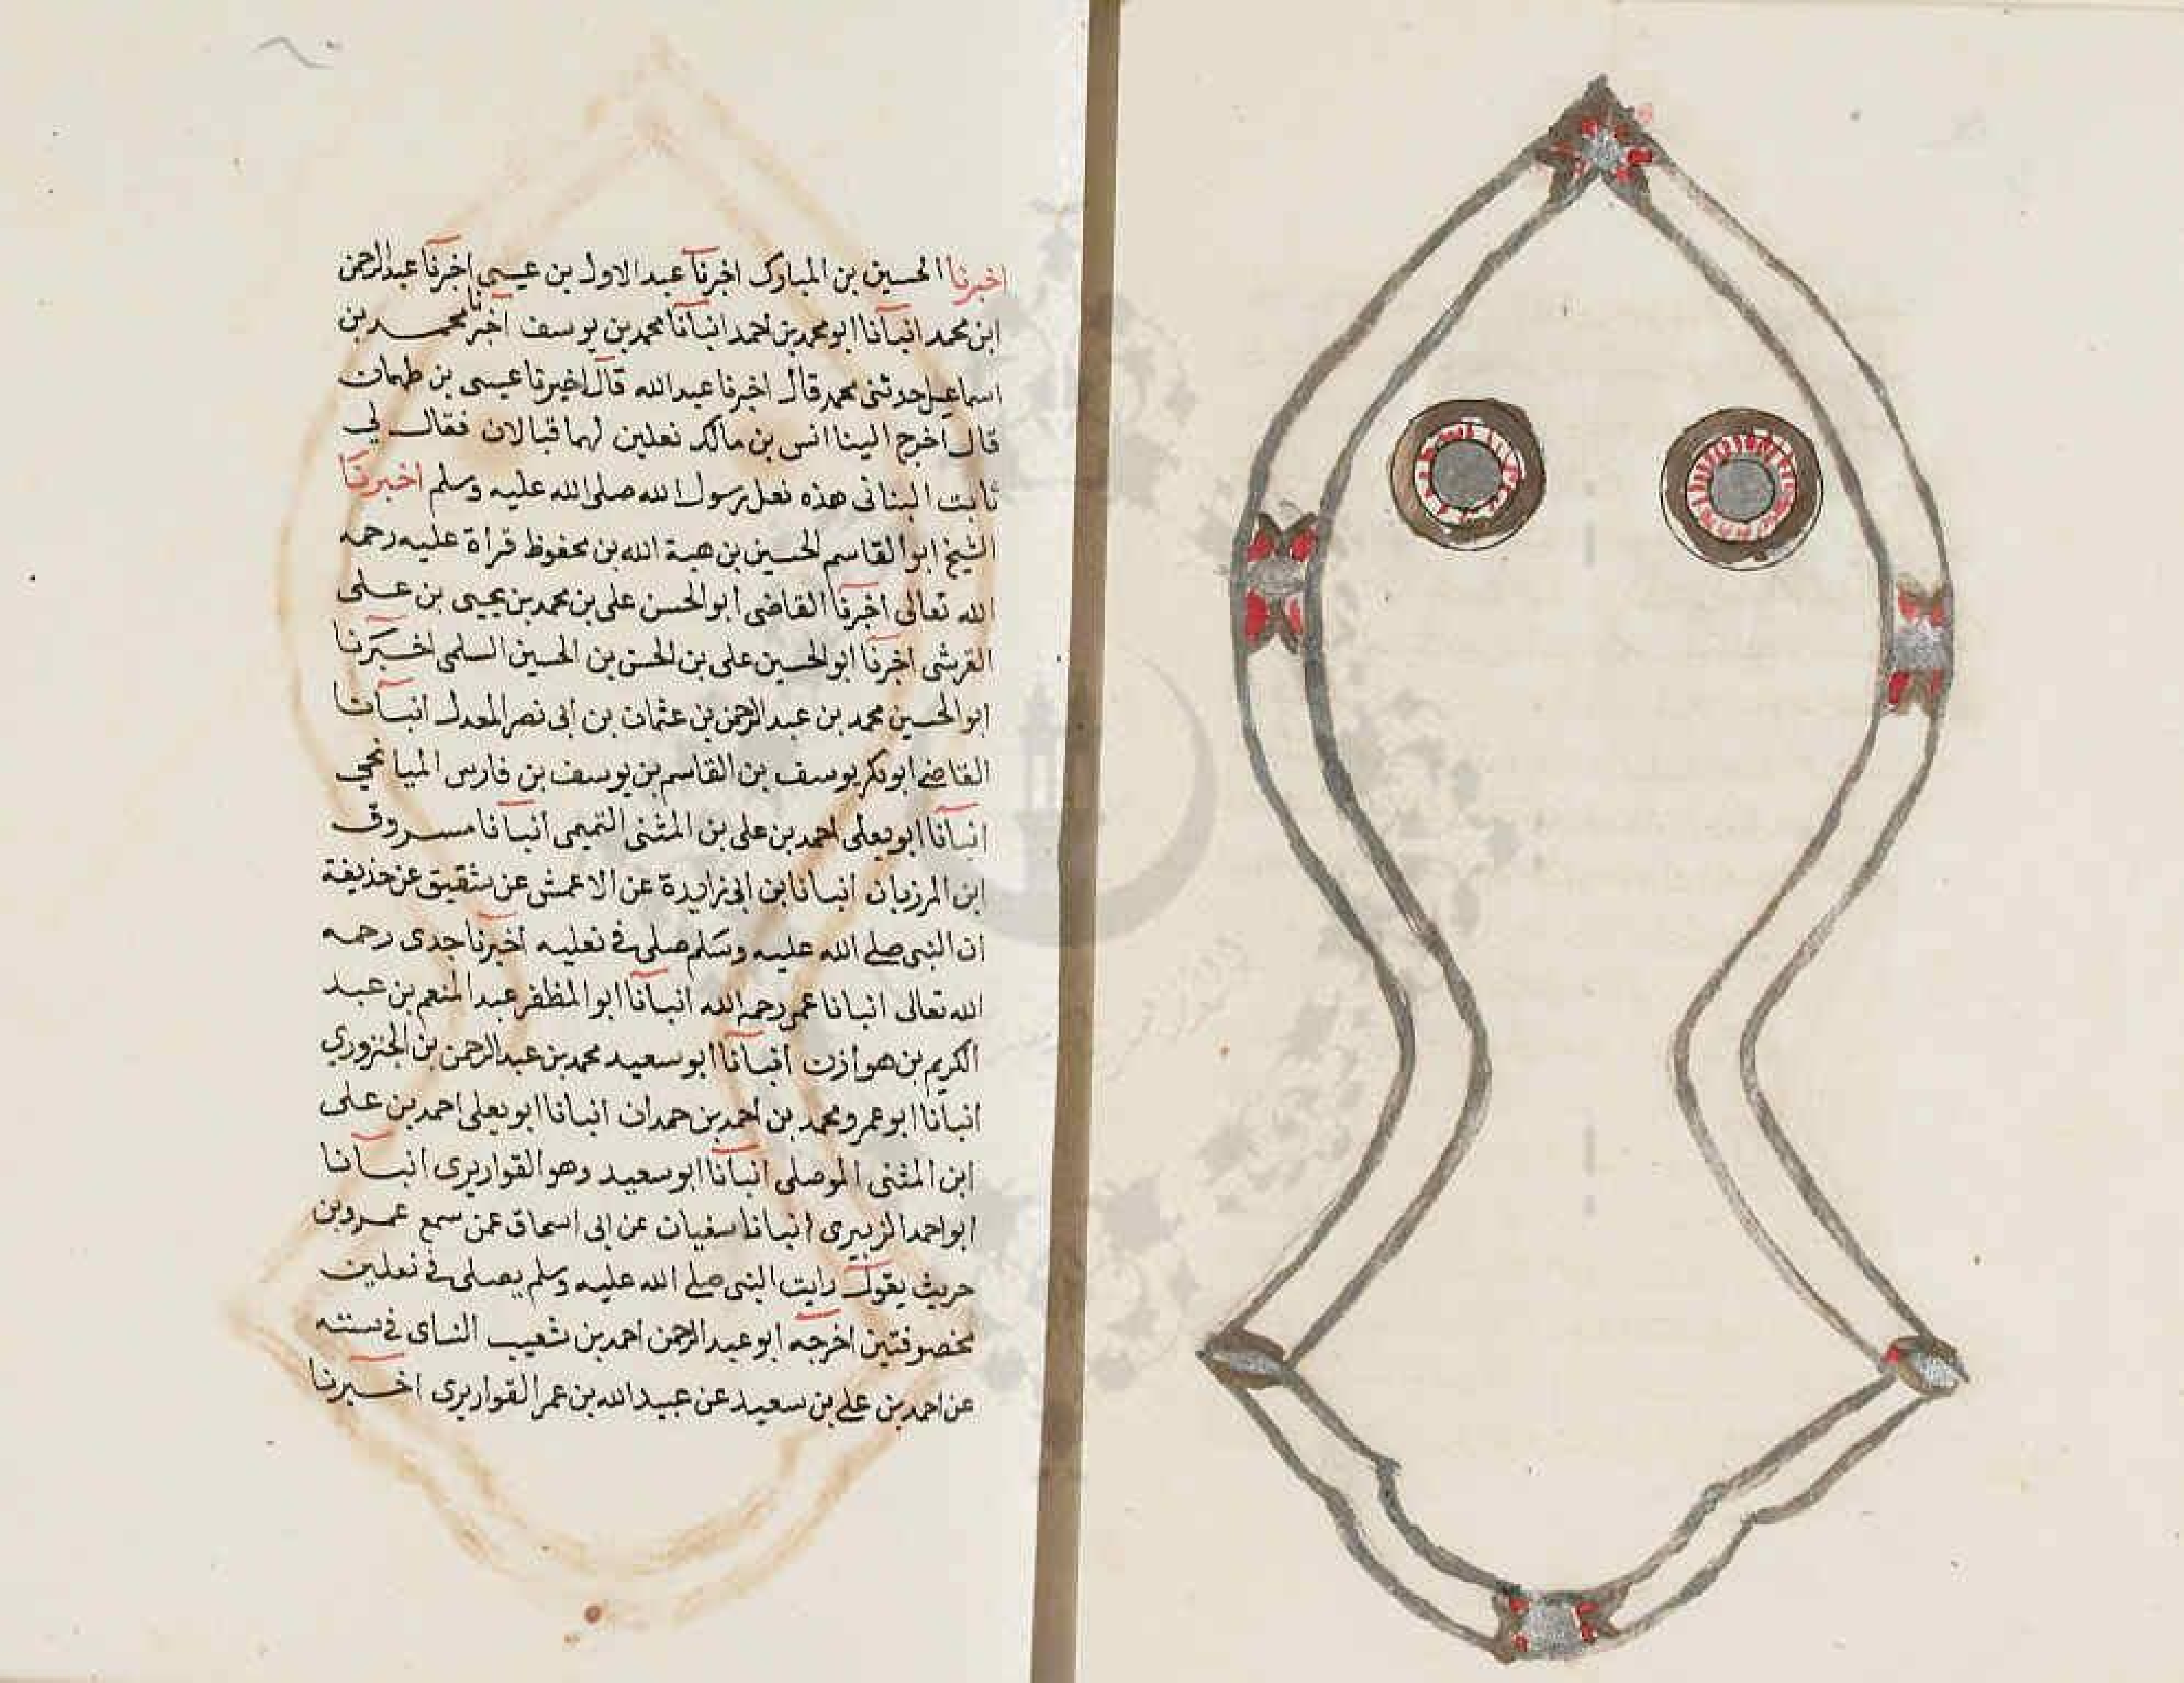 اخبرنا الحسين بن المبارك اخبرنا عبد الاول بن عيسى اخبرنا عبد الرحمن
ابن محمد انبانا ابو محمد بن احمد انبانا محمد بن يوسف اخبرنا محمد بن
اسماعيل حدثنى محمد قال اخبرنا عبد الله قال اخبرنا عيسى بن طهمان
قال اخرج الينا انس بن مالك نعلين لهما قبالان فقال لي
ثابت البنانى هذه نعل رسول الله صلى الله عليه وسلم اخبرنا
الشيخ ابو القاسم الحسين بن هبة الله بن محفوظ قراة عليه رحمه
الله تعالى اخبرنا القاضى ابو الحسن على بن محمد بن يحيى بن على
القرشى اخبرنا ابو الحسين على بن الحسن بن الحسين السلمى اخبرنا
ابو الحسين محمد بن عبد الرحمن بن عثمان بن ابى نصر المعدل انبانا
القاضي ابو بكر يوسف بن القاسم بن يوسف بن فارس الميانجي
انبانا ابو يعلى احمد بن على بن المثنى التميمى انبانا مسروق
ابن المرزبان انبانا بن ابى زايدة عن الاعمش عن شقيق عن حذيفة
ان النبى صلى الله عليه وسلم صلى فى نعليه اخبرنا جدى رحمه
الله تعالى انبانا عمر رحمه الله انبانا ابو المظفر عبد المنعم بن عبد
الكريم بن هوازن انبانا ابو سعيد محمد بن عبد الرحمن بن الجنزوري
انبانا ابو عمرو محمد بن احمد بن حمدان انبانا ابو يعلى احمد بن على
ابن المثنى الموصلى انبانا ابو سعيد وهو القواريرى انبانا
ابو احمد الزبيرى انبانا سفيان عن ابى اسحاق عمن سمع عمرو بن
حريث يقول رايت النبى صلى الله عليه وسلم يصلى فى نعلين
مخصوفتين اخرجه ابو عبد الرحمن احمد بن شعيب النساى فى سننه
عن احمد بن على بن سعيد عن عبيد الله بن عمر القواريرى اخبرنا